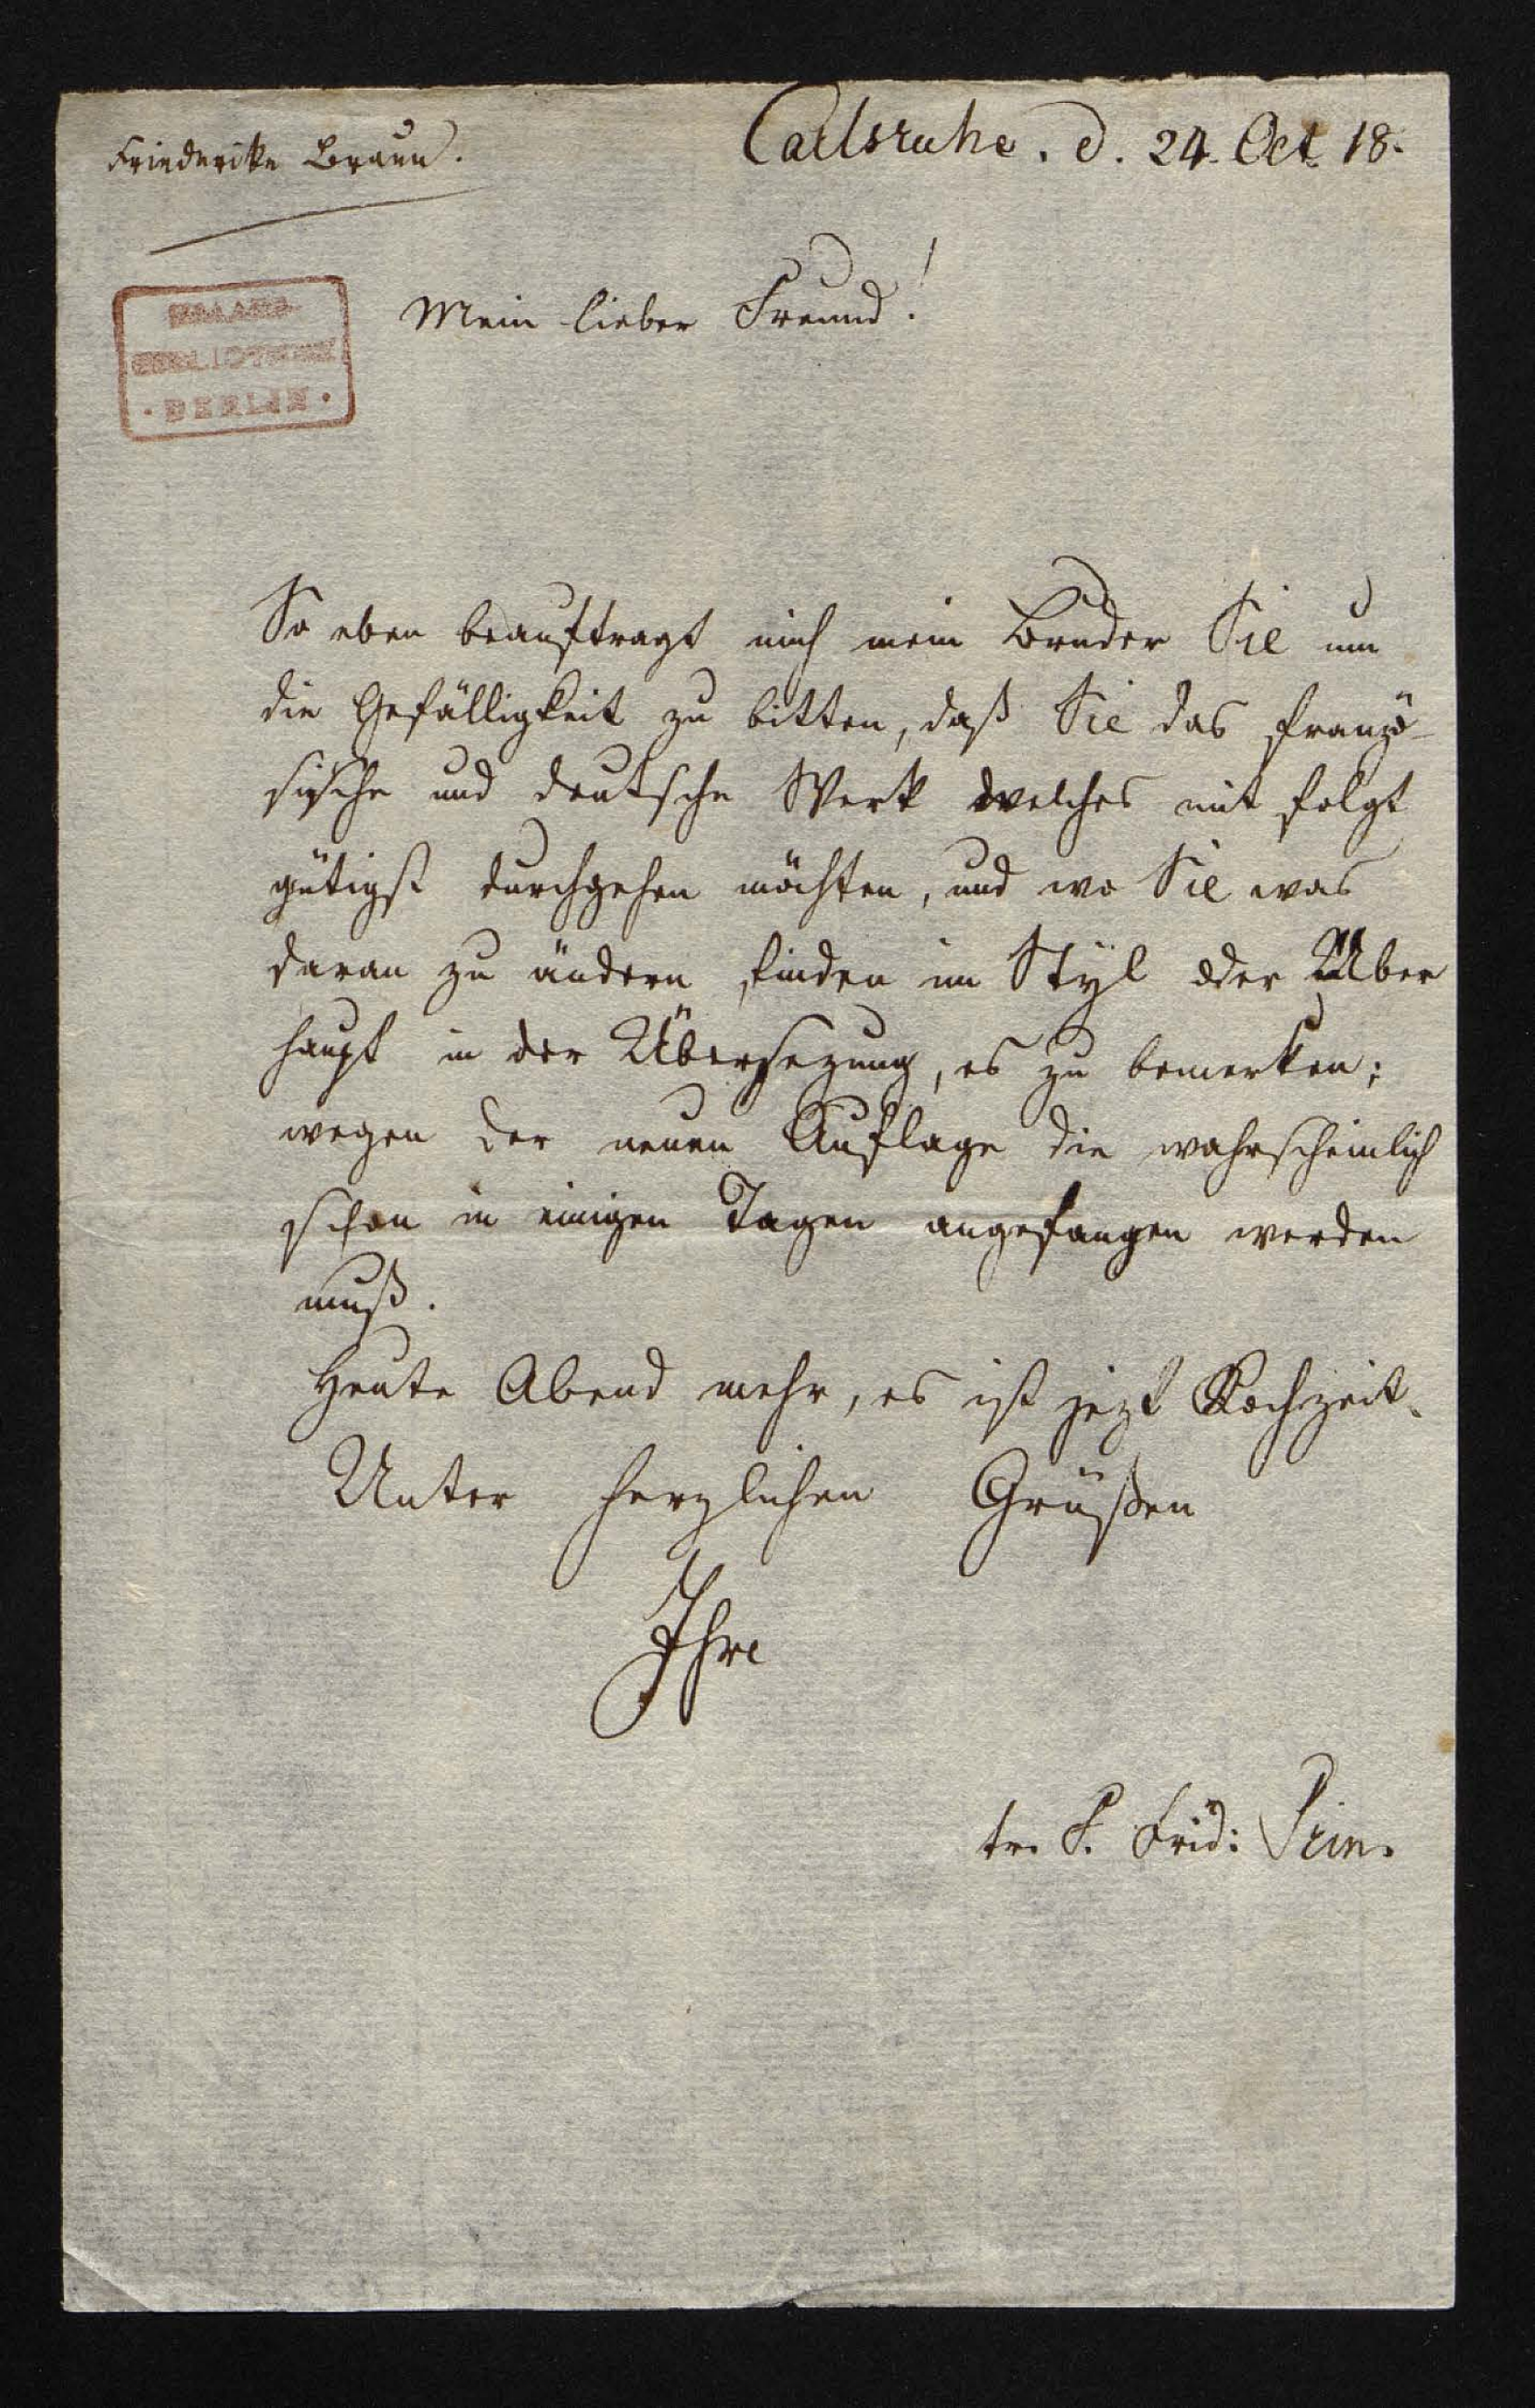 Friederike Braun.
Carlsruhe. d. 24. Oct 18.
STAATS-
BIBLIOTHEK
· BERLIN ·
Mein lieber Freund!
So eben beauftragt mich mein Bruder Sie um
die Gefälligkeit zu bitten, daß Sie das franzö-
sische und deutsche Werk welches mit folgt
gütigst durchgehen möchten, und wo Sie was
daran zu ändern finden im Styl oder Über
haupt in der Übersezung, es zu bemerken;
wegen der neuen Auflage die wahrscheinlich
schon in einigen Tagen angefangen werden
muß.
Heute Abend mehr, es ist jezt Kochzeit.
Unter herzlichen Grüßen
Ihre
tr. F. Frid: